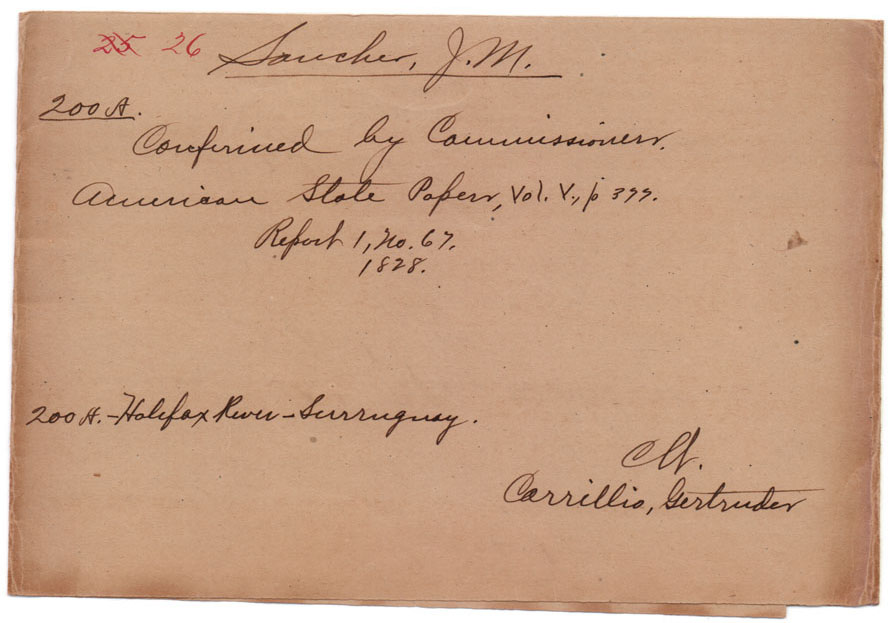 25 26 Sanchez, J.M.
200 A.
Confirmed by Commissioners.
American State Papers, Vol. V., p 399.
Report 1, No. 67.
1828.
200 A. - Halifax River - Surruguay.
Cl't.
Carrillio, Gertrudes